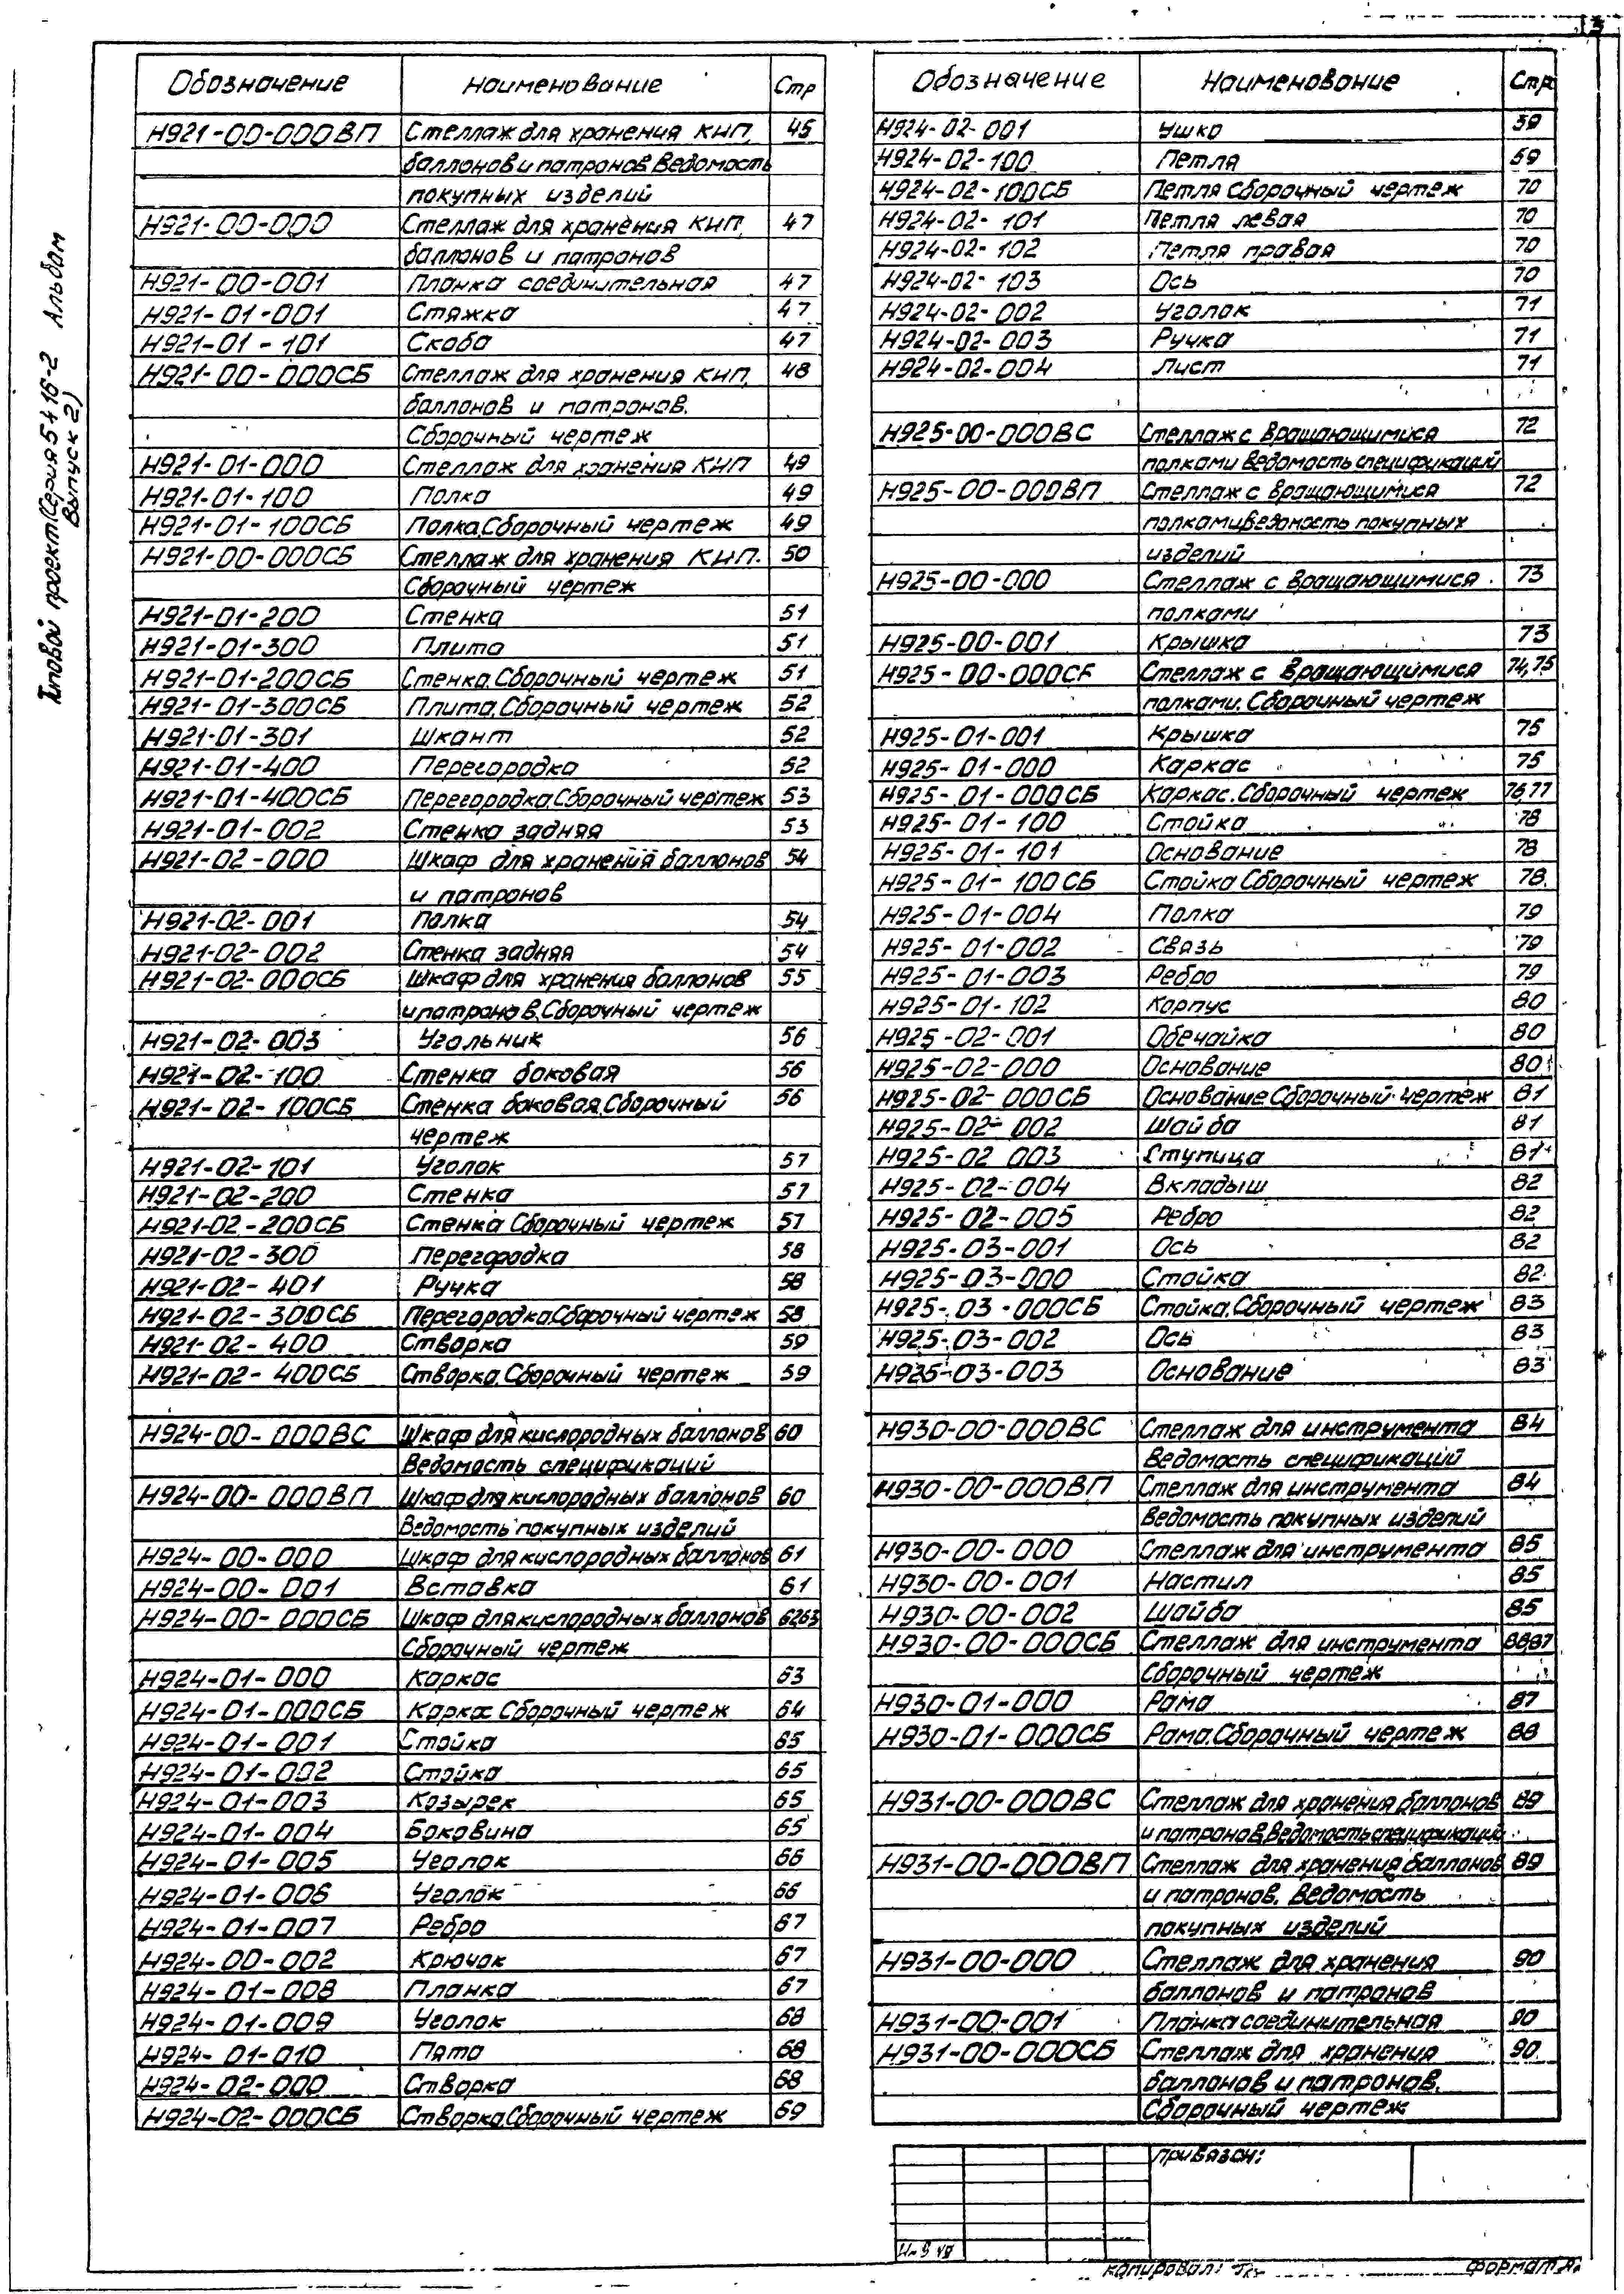 3
Типовой проект (Серия 5416-2 Альбом
Выпуск 2)
Обозначение Наименование Стр
Н921-00-000ВП Стеллаж для хранения КИП, 45
баллонов и патронов Ведомость
покупных изделий
Н921-00-000 Стеллаж для хранения КИП, 47
баллонов и патронов
Н921-00-001 Планка соединительная 47
Н921-01-001 Стяжка 47
Н921-01-101 Скоба 47
Н921-00-000СБ Стеллаж для хранения КИП, 48
баллонов и патронов.
Сборочный чертеж
Н921-01-000 Стеллаж для хранения КИП 49
Н921-01-100 Полка 49
Н921-01-100СБ Полка.Сборочный чертеж 49
Н921-00-000СБ Стеллаж для хранения КИП. 50
Сборочный чертеж
Н921-01-200 Стенка 51
Н921-01-300 Плита 51
Н921-01-200СБ Стенка.Сборочный чертеж 51
Н921-01-300СБ Плита.Сборочный чертеж 52
Н921-01-301 Шкант 52
Н921-01-400 Перегородка 52
Н921-01-400СБ Перегородка.Сборочный чертеж 53
Н921-01-002 Стенка задняя 53
Н921-02-000 Шкаф для хранения баллонов 54
и патронов
Н921-02-001 Полка 54
Н921-02-002 Стенка задняя 54
Н921-02-000СБ Шкаф для хранения баллонов 55
и патронов.Сборочный чертеж
Н921-02-003 Угольник 56
Н921-02-100 Стенка боковая 56
Н921-02-100СБ Стенка боковая.Сборочный 56
чертеж
Н921-02-101 Уголок 57
Н921-02-200 Стенка 57
Н921-02-200СБ Стенка Сборочный чертеж 57
Н921-02-300 Перегородка 58
Н921-02-401 Ручка 58
Н921-02-300СБ Перегородка.Сборочный чертеж 58
Н921-02-400 Створка 59
Н921-02-400СБ Створка.Сборочный чертеж 59
Н924-00-000ВС Шкаф для кислородных баллонов 60
Ведомость спецификаций
Н924-00-000ВП Шкаф для кислородных баллонов 60
Ведомость покупных изделий
Н924-00-000 Шкаф для кислородных баллонов 61
Н924-00-001 Вставка 61
Н924-00-000СБ Шкаф для кислородных баллонов 62,63
Сборочный чертеж
Н924-01-000 Каркас 63
Н924-01-000СБ Каркас Сборочный чертеж 64
Н924-01-001 Стойка 65
Н924-01-002 Стойка 65
Н924-01-003 Козырек 65
Н924-01-004 Боковина 65
Н924-01-005 Уголок 66
Н924-01-006 Уголок 66
Н924-01-007 Ребро 67
Н924-00-002 Крючок 67
Н924-01-008 Планка 67
Н924-01-009 Уголок 68
Н924-01-010 Пята 68
Н924-02-000 Створка 68
Н924-02-000СБ Створка.Сборочный чертеж 69
Обозначение Наименование Стр
Н924-02-001 Ушко 59
Н924-02-100 Петля 69
Н924-02-100СБ Петля Сборочный чертеж 70
Н924-02-101 Петля левая 70
Н924-02-102 Петля правая 70
Н924-02-103 Ось 70
Н924-02-002 Уголок 71
Н924-02-003 Ручка 71
Н924-02-004 Лист 71
Н925-00-000ВС Стеллаж с вращающимися 72
полками Ведомость спецификаций
Н925-00-000ВП Стеллаж с вращающимися 72
полками.Ведомость покупных
изделий
Н925-00-000 Стеллаж с вращающимися 73
полками
Н925-00-001 Крышка 73
Н925-00-000СБ Стеллаж с вращающимися 74,75
полками. Сборочный чертеж
Н925-01-001 Крышка 75
Н925-01-000 Каркас 75
Н925-01-000СБ Каркас.Сборочный чертеж 76,77
Н925-01-100 Стойка 78
Н925-01-101 Основание 78
Н925-01-100СБ Стойка Сборочный чертеж 78
Н925-01-004 Полка 79
Н925-01-002 Связь 79
Н925-01-003 Ребро 79
Н925-01-102 Корпус 80
Н925-02-001 Обечайка 80
Н925-02-000 Основание 80
Н925-02-000СБ Основание.Сборочный чертеж 81
Н925-02-002 Шайба 81
Н925-02 003 Ступица 81
Н925-02-004 Вкладыш 82
Н925-02-005 Ребро 82
Н925-03-001 Ось 82
Н925-03-000 Стойка 82
Н925-03-000СБ Стойка.Сборочный чертеж 83
Н925-03-002 Ось 83
Н925-03-003 Основание 83
Н930-00-000ВС Стеллаж для инструмента 84
Ведомость спецификаций
Н930-00-000ВП Стеллаж для инструмента 84
Ведомость покупных изделий
Н930-00-000 Стеллаж для инструмента 85
Н930-00-001 Настил 85
Н930-00-002 Шайба 85
Н930-00-000СБ Стеллаж для инструмента 86,87
Сборочный чертеж
Н930-01-000 Рама 87
Н930-01-000СБ Рама.Сборочный чертеж 88
Н931-00-000ВС Стеллаж для хранения баллонов 89
и патронов.Ведомость спецификаций
Н931-00-000ВП Стеллаж для хранения баллонов 89
и патронов. Ведомость
покупных изделий
Н931-00-000 Стеллаж для хранения 90
баллонов и патронов
Н931-00-001 Планка соединительная 90
Н931-00-000СБ Стеллаж для хранения 90
баллонов и патронов.
Сборочный чертеж
Привязан:
Копировал: Формат